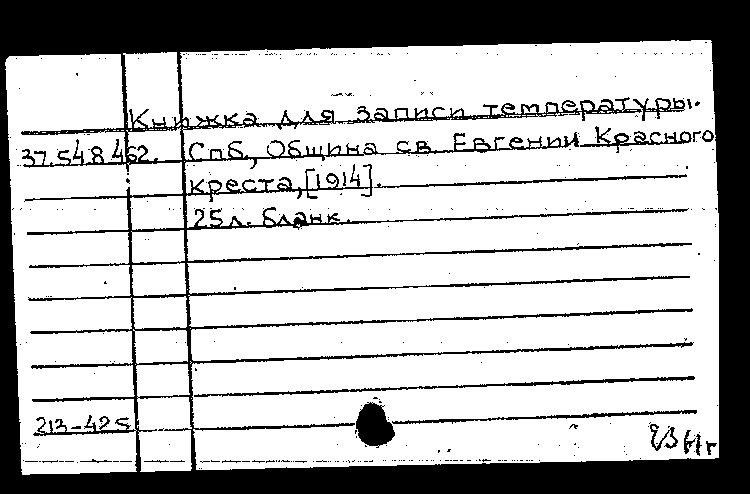 Книжка для записи температуры.
37.548462. Спб, Община св Евгении Красного
креста, [1914].
25 л. бланк.
213-425